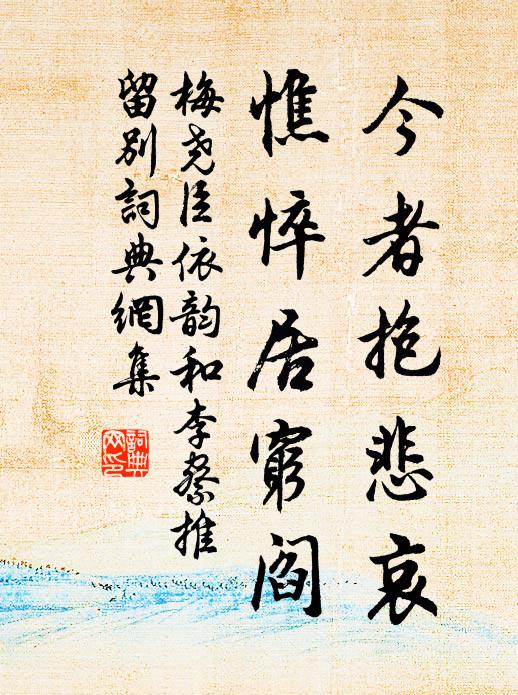 今者抱悲哀
憔悴居穷阎
梅尧臣依韵和李察推
留别詞典網集
詞典
网印